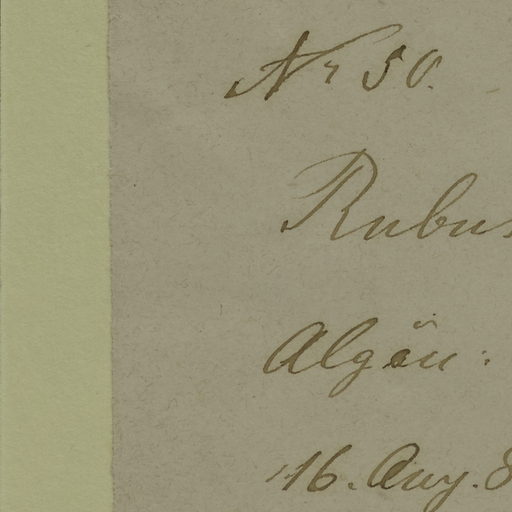 Nr 50.
Rubus
Algäu:
16. Aug. 8